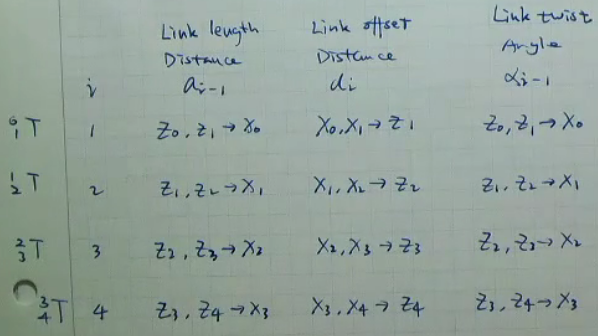 Link length Link offset Link twist
Distance Distance Angle
i a_{i-1} d_i α_{i-1}
⁰₁T 1 Z₀, Z₁ → X₀ X₀, X₁ → Z₁ Z₀, Z₁ → X₀
¹₂T 2 Z₁, Z₂ → X₁ X₁, X₂ → Z₂ Z₁, Z₂ → X₁
²₃T 3 Z₂, Z₃ → X₂ X₂, X₃ → Z₃ Z₂, Z₃ → X₂
³₄T 4 Z₃, Z₄ → X₃ X₃, X₄ → Z₄ Z₃, Z₄ → X₃